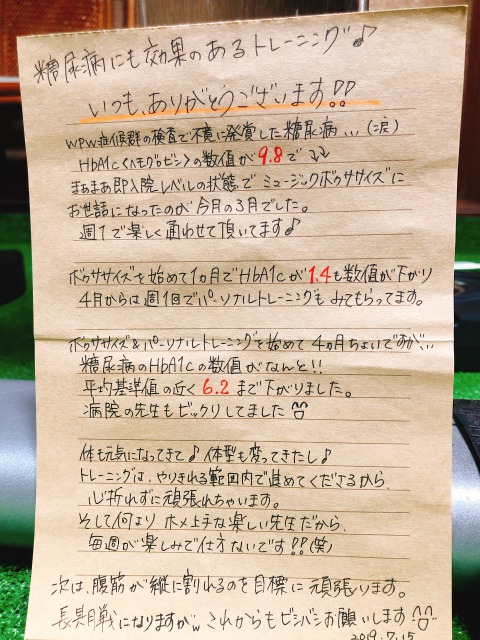 糖尿病にも効果のあるトレーニング♪
いつも、ありがとうございます!!
WPW症候群の検査で不意に発覚した糖尿病…(;涙)
HbA1c〈ヘモグロビン〉の数値が9.8で↓↓
まぁまぁ即入院レベルの状態でミュージックボクササイズに
お世話になったのが今月の3月でした。
週1で楽しく通わせて頂いてます♪
ボクササイズを始めて1ヵ月でHbA1cが1.4も数値が下がり
4月からは週1回でパーソナルトレーニングもみてもらってます。
ボクササイズ&パーソナルトレーニングを始めて4ヵ月ちょいですが…
糖尿病のHbA1cの数値がなんと!!
平均基準値の近く6.2まで下がりました。
病院の先生もビックリしてました
体も元気になってきて♪体型も変ってきたし♪
トレーニングは、やりきれる範囲内で進めてくださるから
心折れずに頑張れちゃいます。
そして何よりホメ上手な楽しい先生だから、
毎週が楽しみで仕方ないです!!(笑)
次は、腹筋が縦に割れるのを目標に頑張ります。
長期戦になりますがwこれからもビシバシお願いします!
2019.7.15